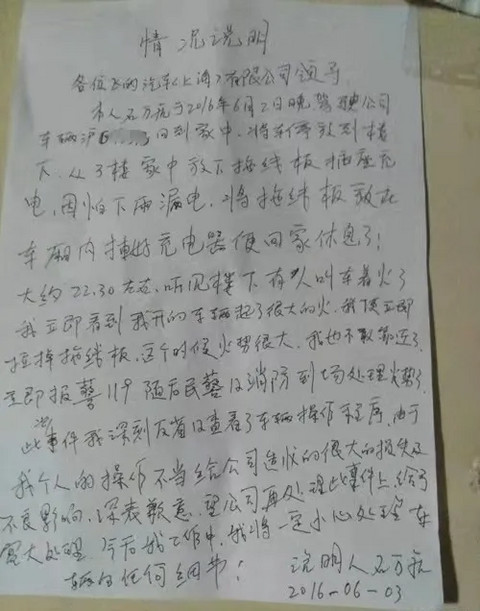 情况说明
各位飞的汽车(上海)有限公司领导
本人石万 于2016年6月2日晚驾驶公司
车辆沪 回到家中,将车停放到楼
下,从3楼家中放下拖线板插座充
电,因怕下雨漏电,将拖线板放在
车厢内插好充电器便回家休息了!
大约22.30左右,听见楼下有人叫车着火了
我立即看到我开的车辆起了很大的火,我便立即
拉掉拖线板,这个时候火势很大,我也不敢靠近了
立即报警119 随后民警及消防到场处理火势了.
此次事件我深刻反省及查看了车辆操作程序,由于
我个人的操作不当给公司造成的很大的损失及
不良影响,深表歉意,望公司再处理此事件上,给予
宽大处理 今后我工作中,我将一定小心处理车
辆的任何细节!
说明人石万
2016-06-03